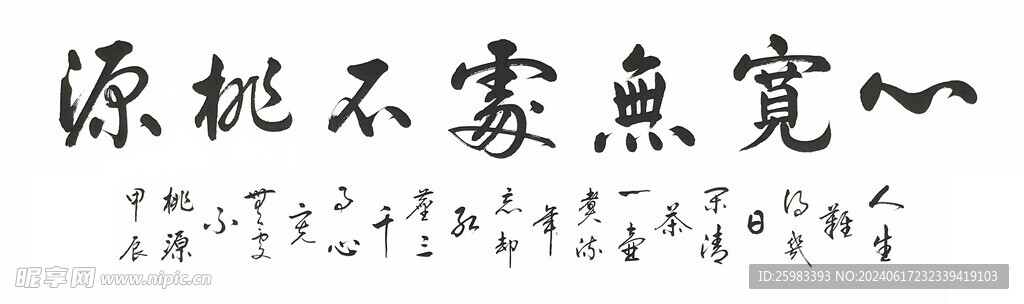 心寬無處不桃源
人生難得幾日閑清茶一壺煮流年忘却紅塵三千事心寬無處不桃源甲辰
昵享网 www.nipic.cn
ID:25983393 NO:20240617232339419103